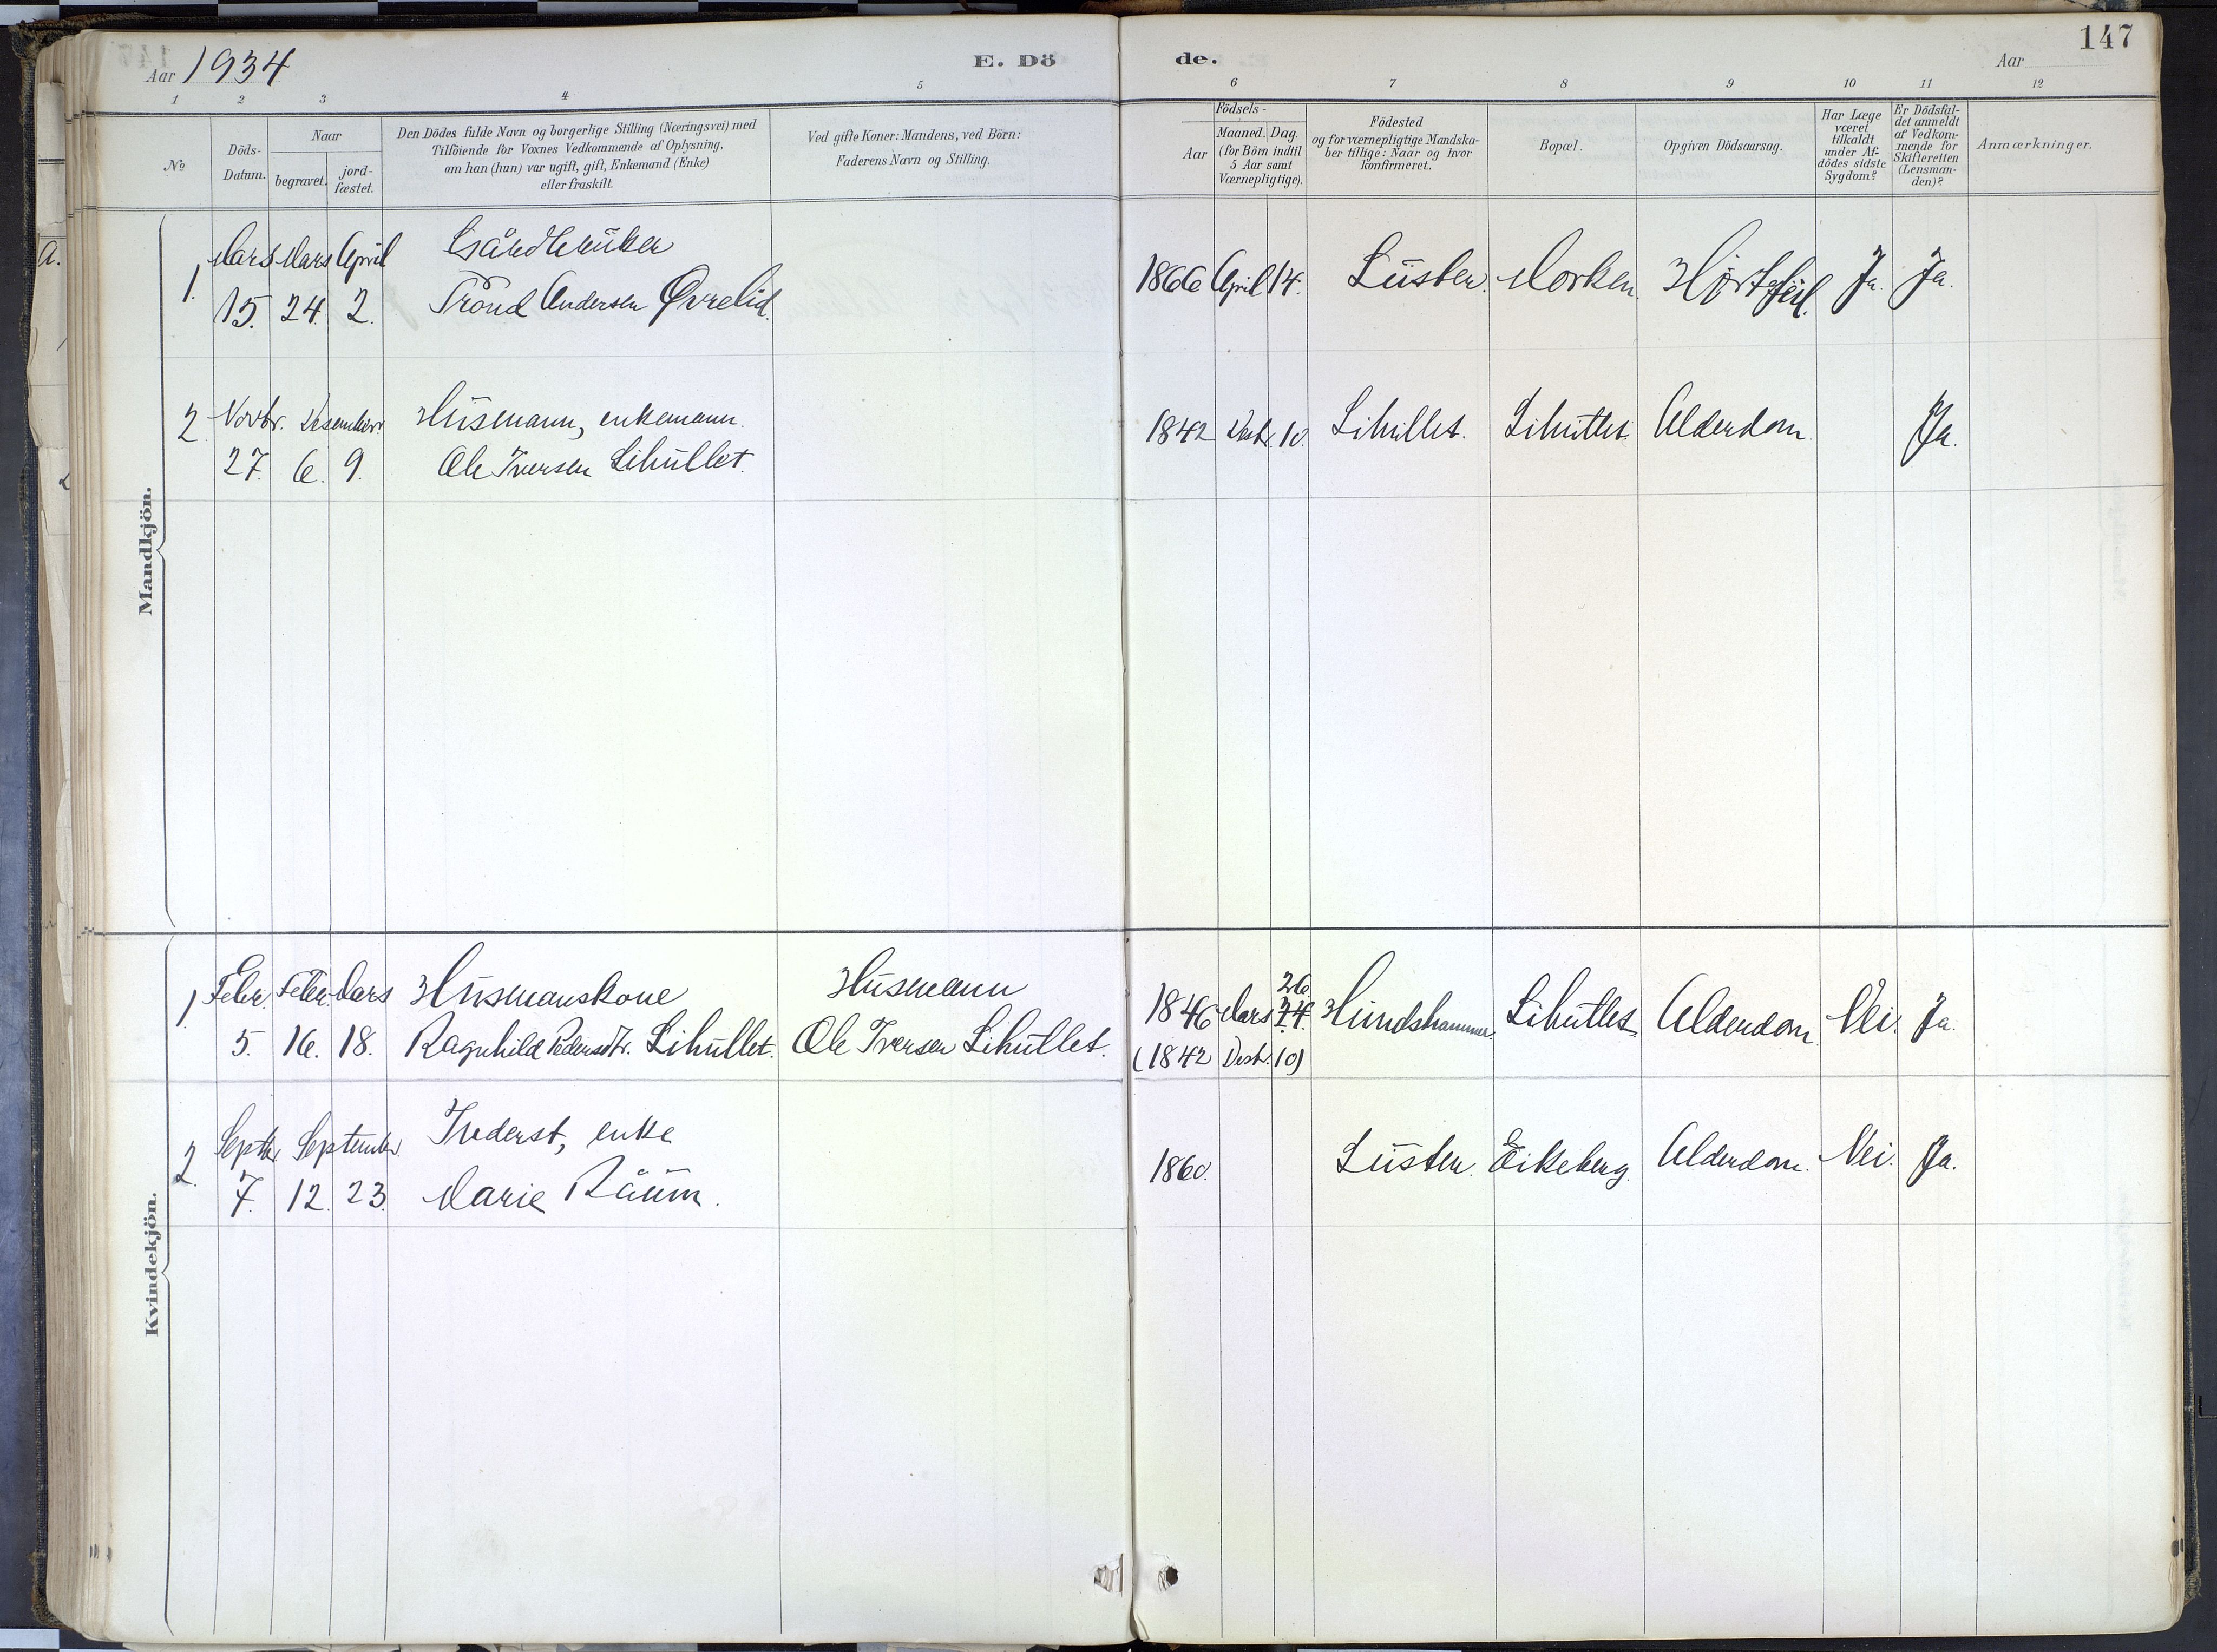 147
Aar 1934
E. Dö
de.
Aar
1 2 3 4 5 6 7 8 9 10 11 12
No
Döds-
Datum.
Naar
begravet.
jord-
fæstet.
Den Dödes fulde Navn og borgerlige Stilling (Næringsvei) med
Tilföiende for Voxnes Vedkommende af Oplysning,
om han (hun) var ugift, gift, Enkemand (Enke)
eller fraskilt.
Ved gifte Koner: Mandens, ved Börn:
Faderens Navn og Stilling.
Födsels-
Aar
Maaned. Dag.
(for Börn indtil
5 Aar samt
Værnepligtige).
Födested
og for værnepligtige Mandska-
ber tillige: Naar og hvor
konfirmeret.
Bopæl.
Opgiven Dödsaarsag.
Har Læge
været
tilkaldt
under Af-
dödes sidste
Sygdom?
Er Dödsfal-
det anmeldt
af Vedkom-
mende for
Skifteretten
(Lensman-
den)?
Anmærkninger.
Mandkjön.
1. Mars Mars April Gårdbruker
15. 24. 2. Trond Andersen Øvrelid.
1866 April 14. Luster. Morken. Hjertefeil. Ja. Ja.
2. Novbr. Desember. Husmann, enkemann.
27. 6. 9. Ole Iversen Lihullet.
1842 Desbr. 10. Lihullet. Lihullet. Alderdom. Ja.
Kvindekjön.
1. Febr. Febr. Mars Husmanskone Husmann
5. 16. 18. Ragnhild Pedersdtr. Lihullet. Ole Iversen Lihullet.
26.
1846 Mars 24. Hundshammer. Lihullet. Alderdom. Nei. Ja.
(1842 Desb. 10)
2. Septbr. September. Inderst, enke
7. 12. 23. Marie Råum.
1860. Luster. Eikeberg. Alderdom. Nei. Ja.